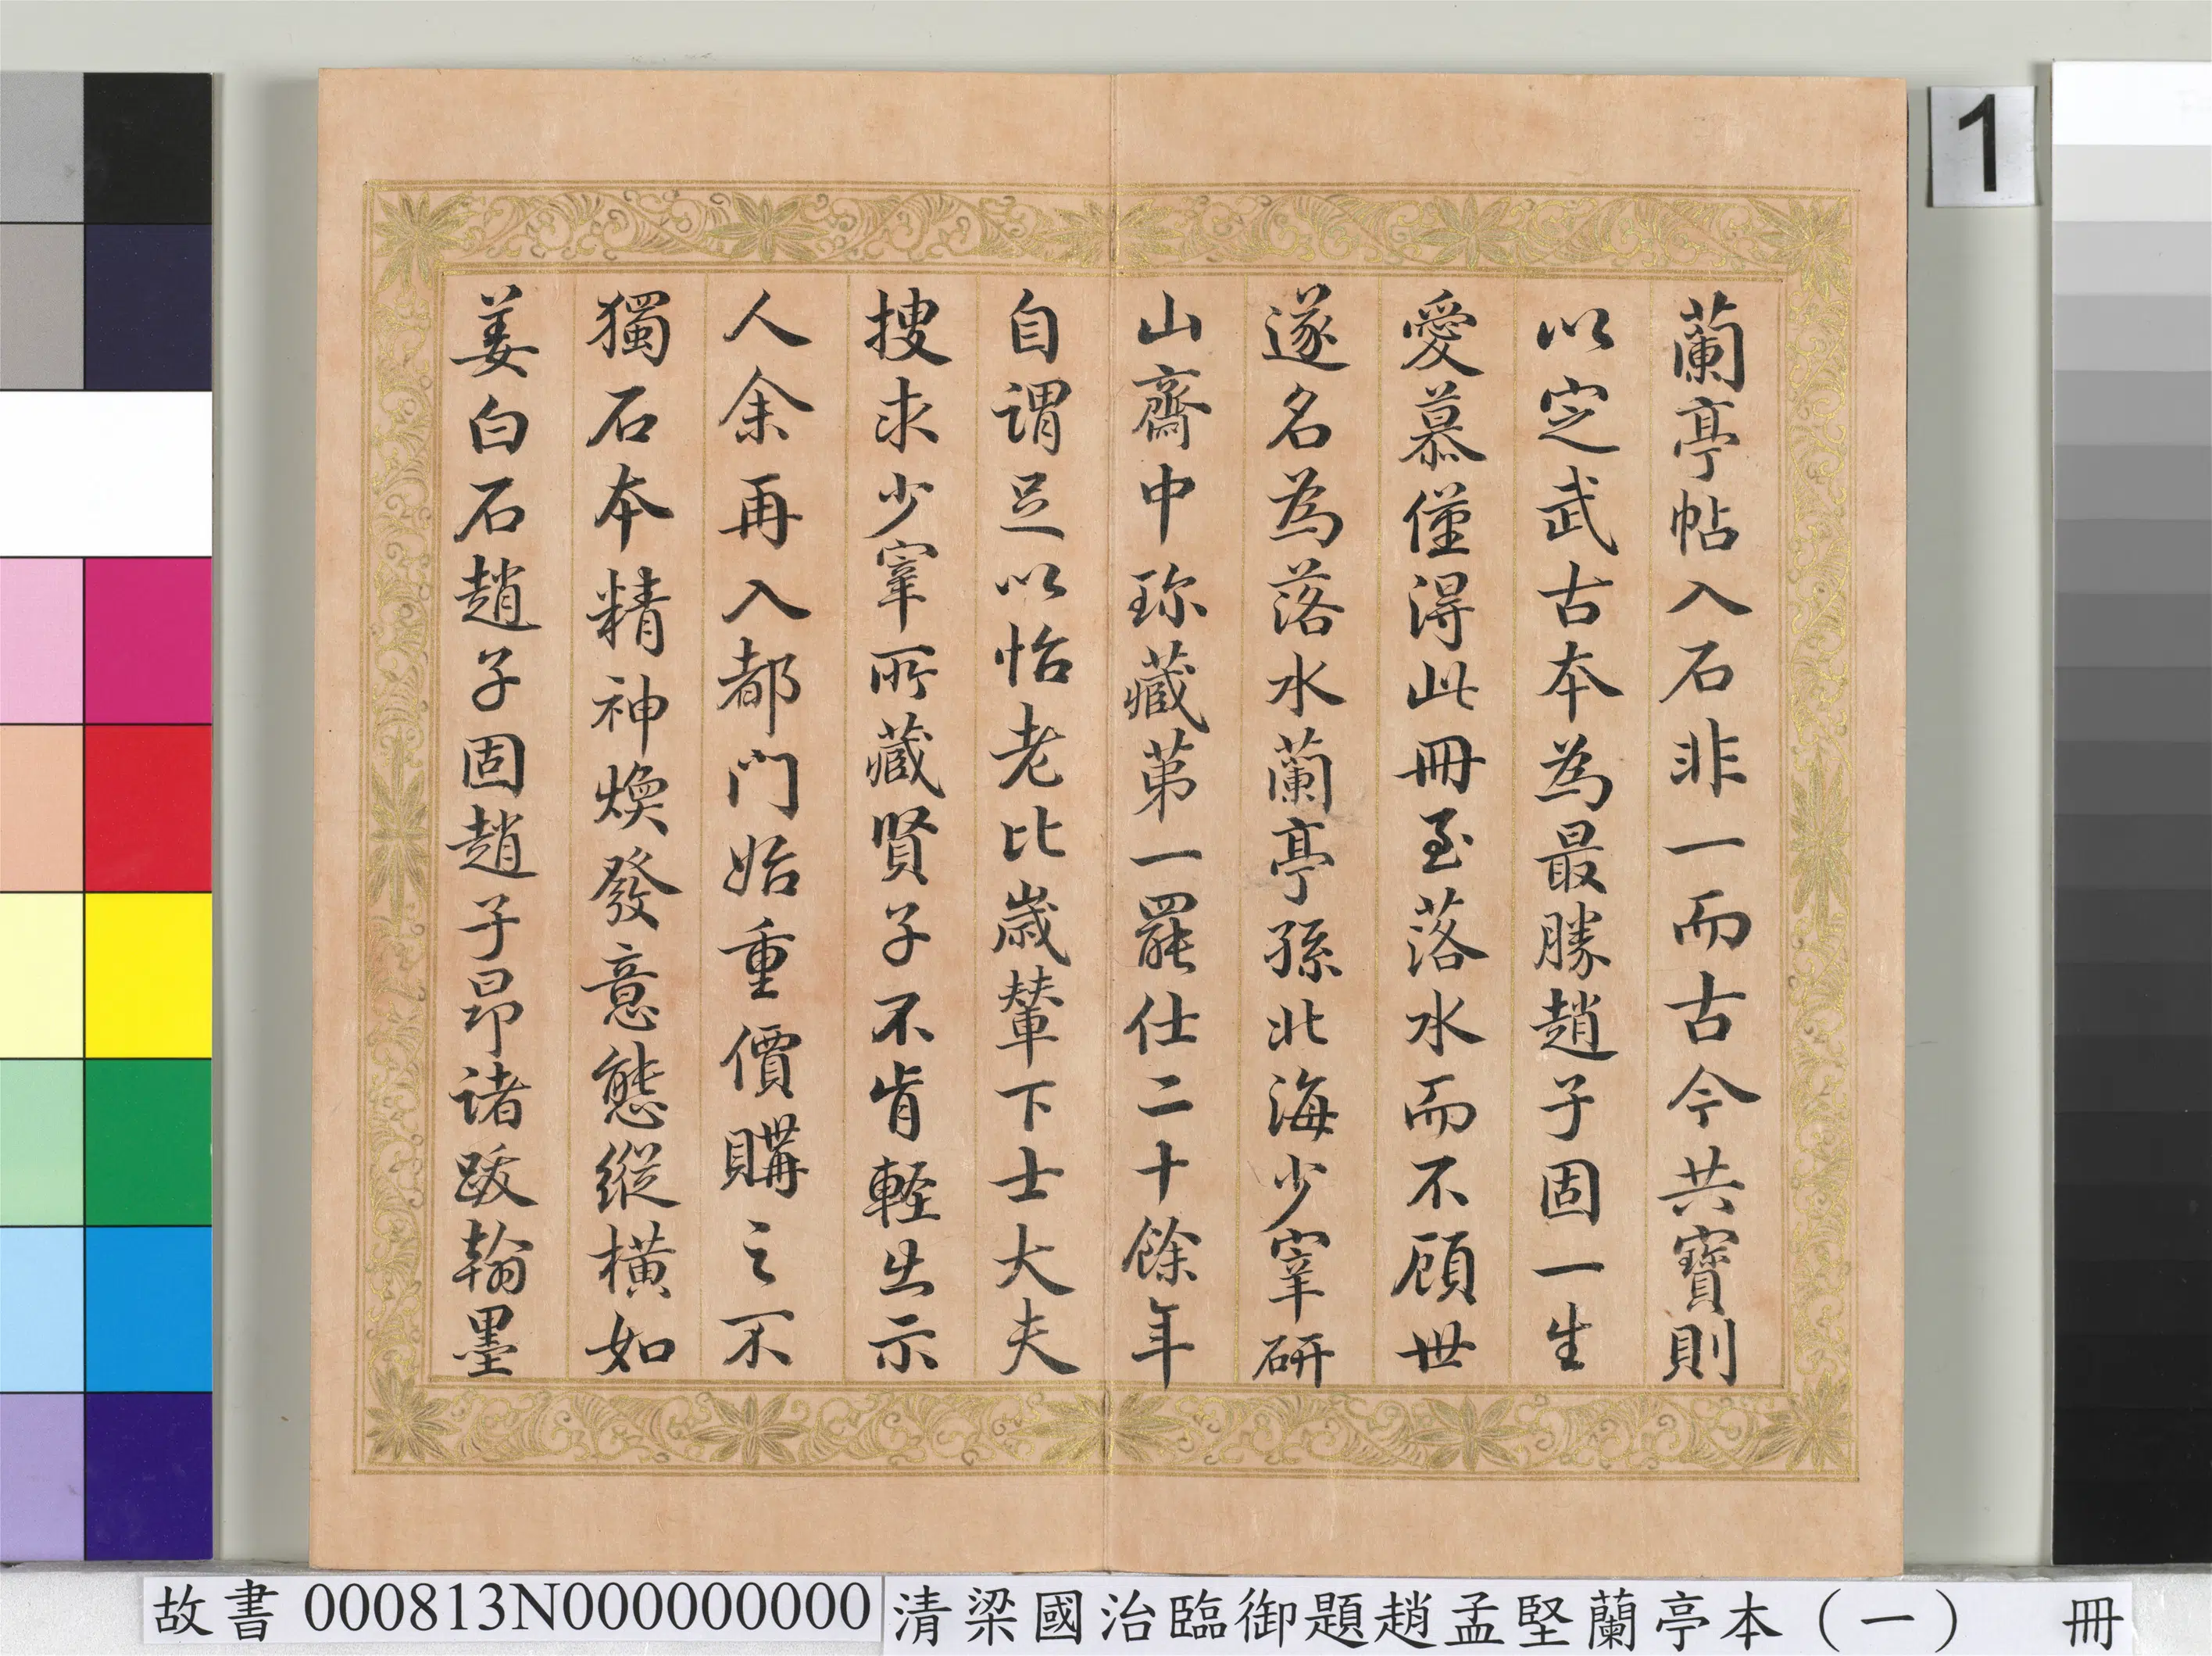 蘭亭帖入石非一而古今共寶則
以定武古本為最勝趙子固一生
愛慕僅得此冊至落水而不顧世
遂名為落水蘭亭孫北海少宰研
山齋中珎藏第一罷仕二十餘年
自謂足以怡老比歲輦下士大夫
搜求少宰所藏賢子不肯輕出示
人余再入都門始重價購之不
獨石本精神煥發意態縱橫如
姜白石趙子固趙子昂諸跋翰墨
1
故書 000813N000000000 清梁國治臨御題趙孟堅蘭亭本（一） 冊